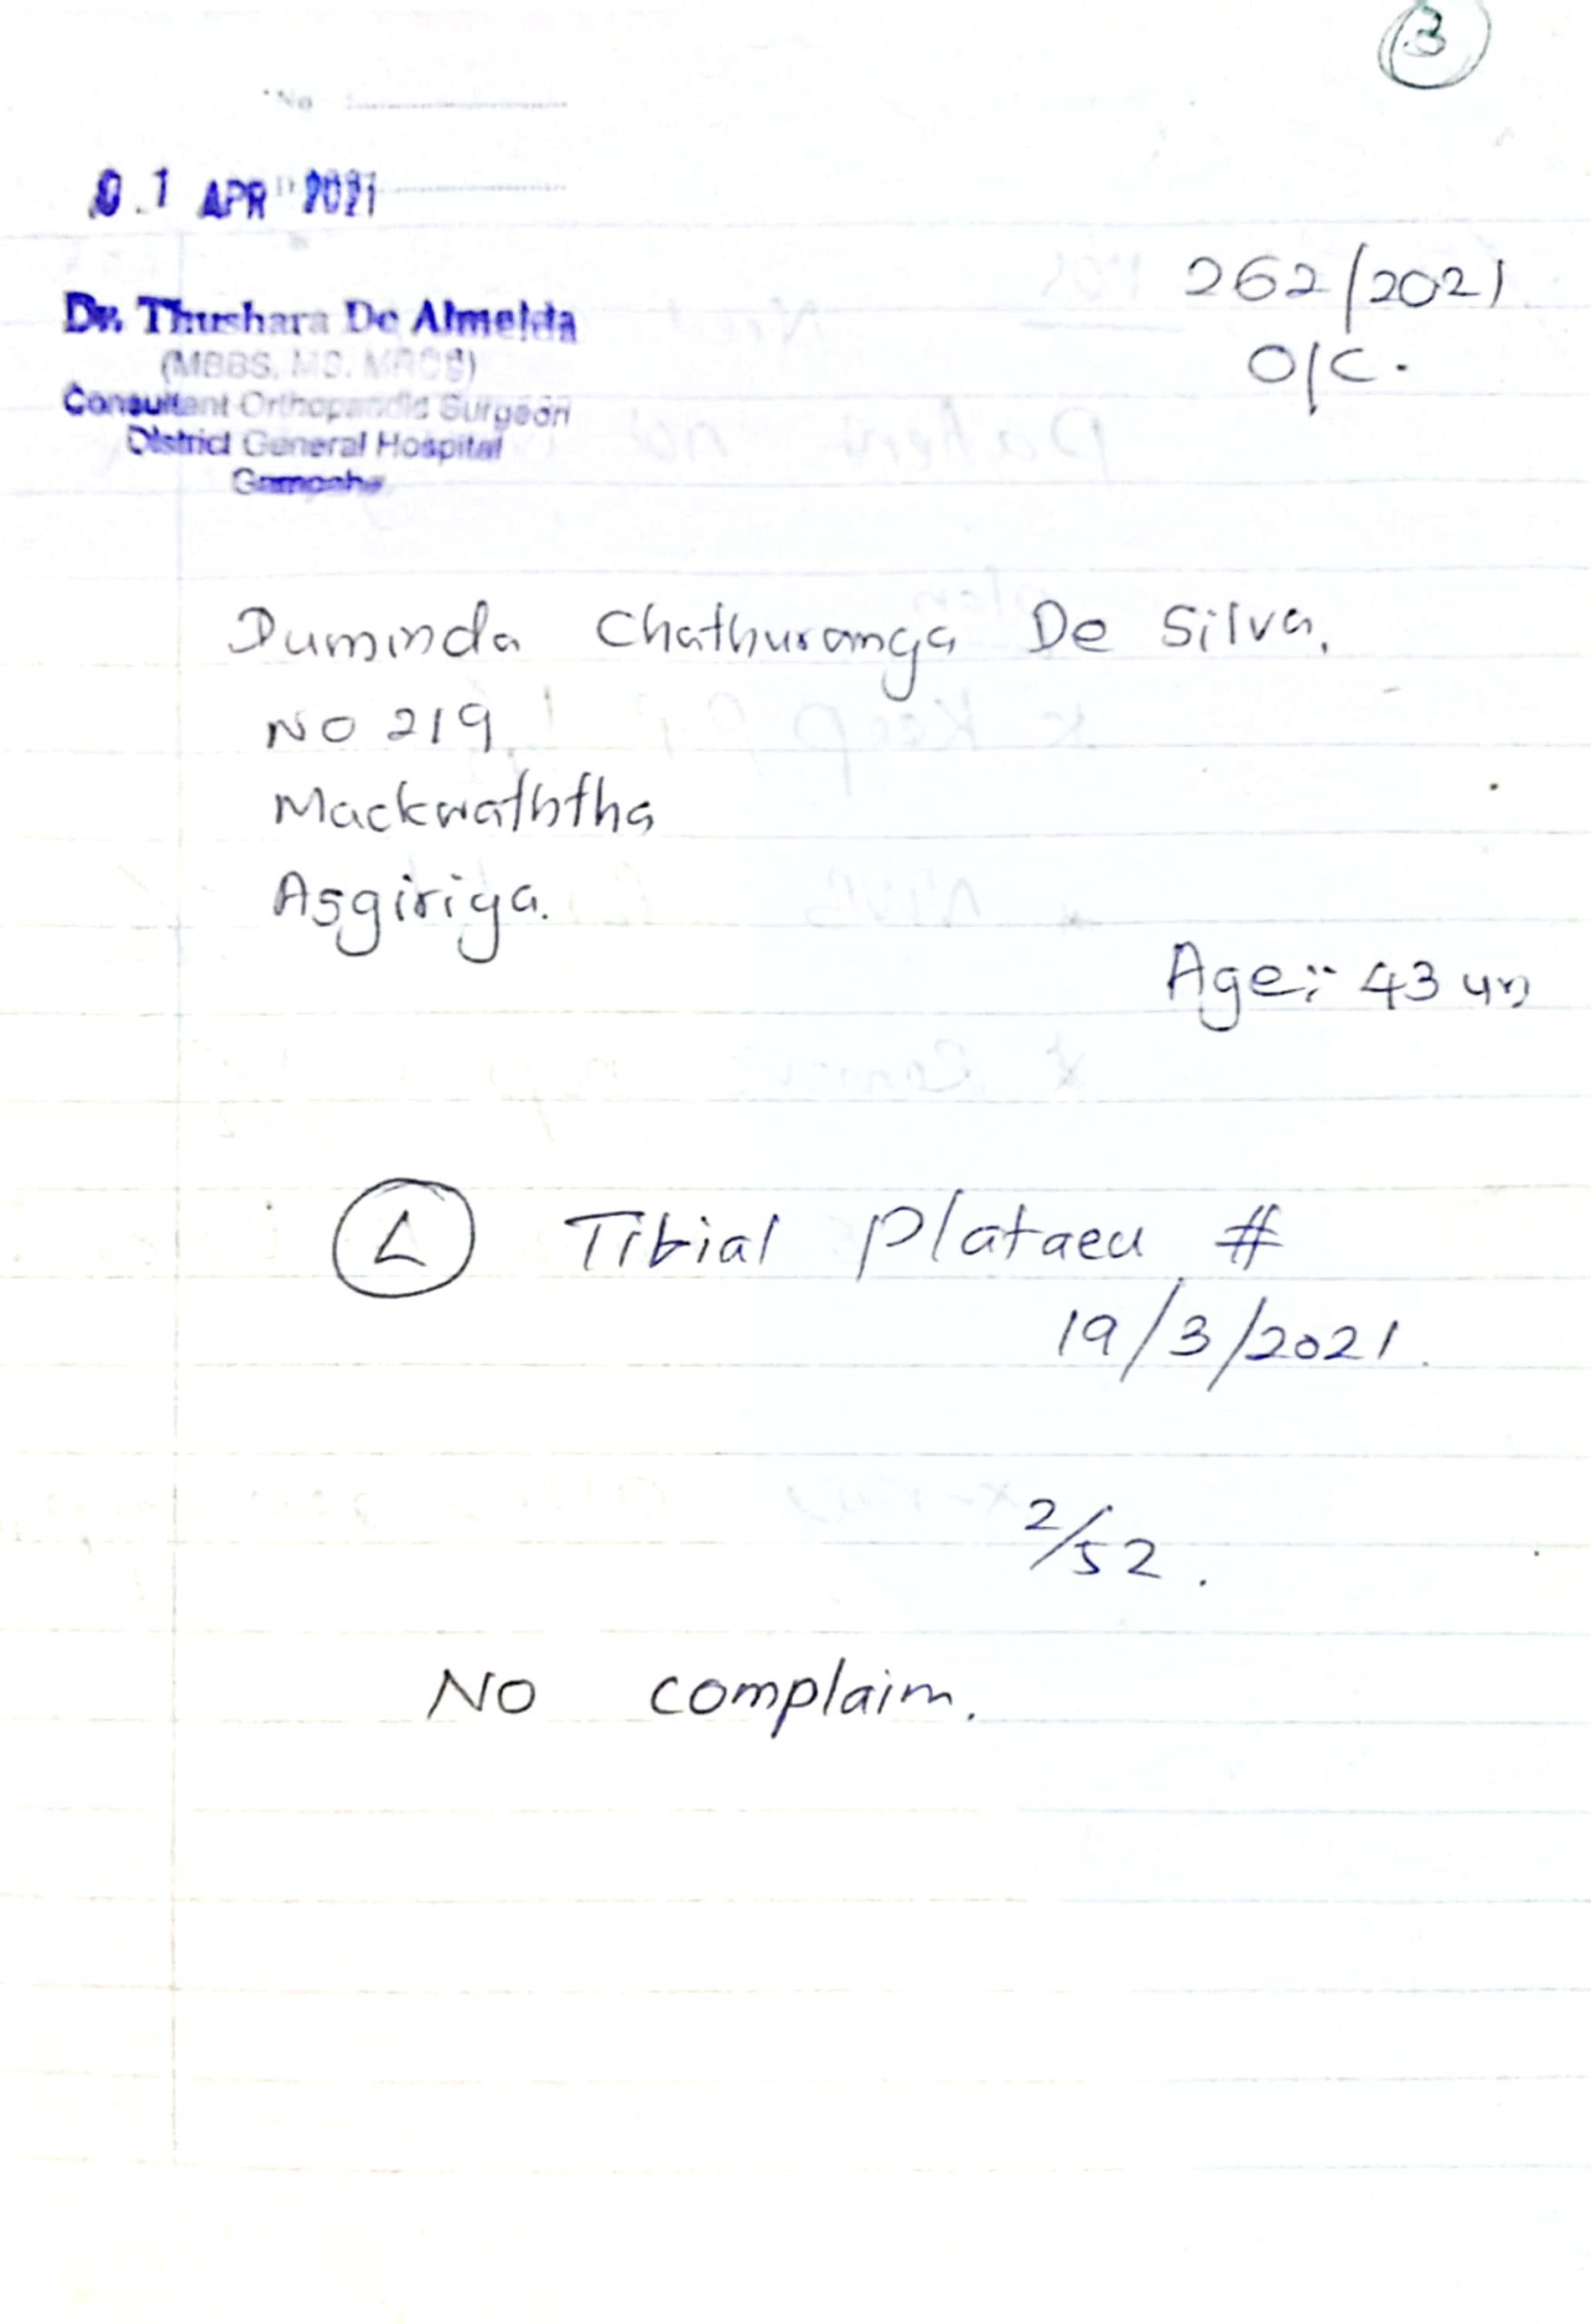 3
No
01 APR 2021
262/2021
O/C.
Dr. Thushara De Almeida
(MBBS, MS. MRCS)
Consultant Orthopaedic Surgeon
District General Hospital
Gampaha
Duminda Chathuranga De Silva.
NO 219
Mackwaththa
Asgiriya.
Age:- 43 yrs
L Tibial Plataeu #
19/3/2021.
2/52.
No complaim.